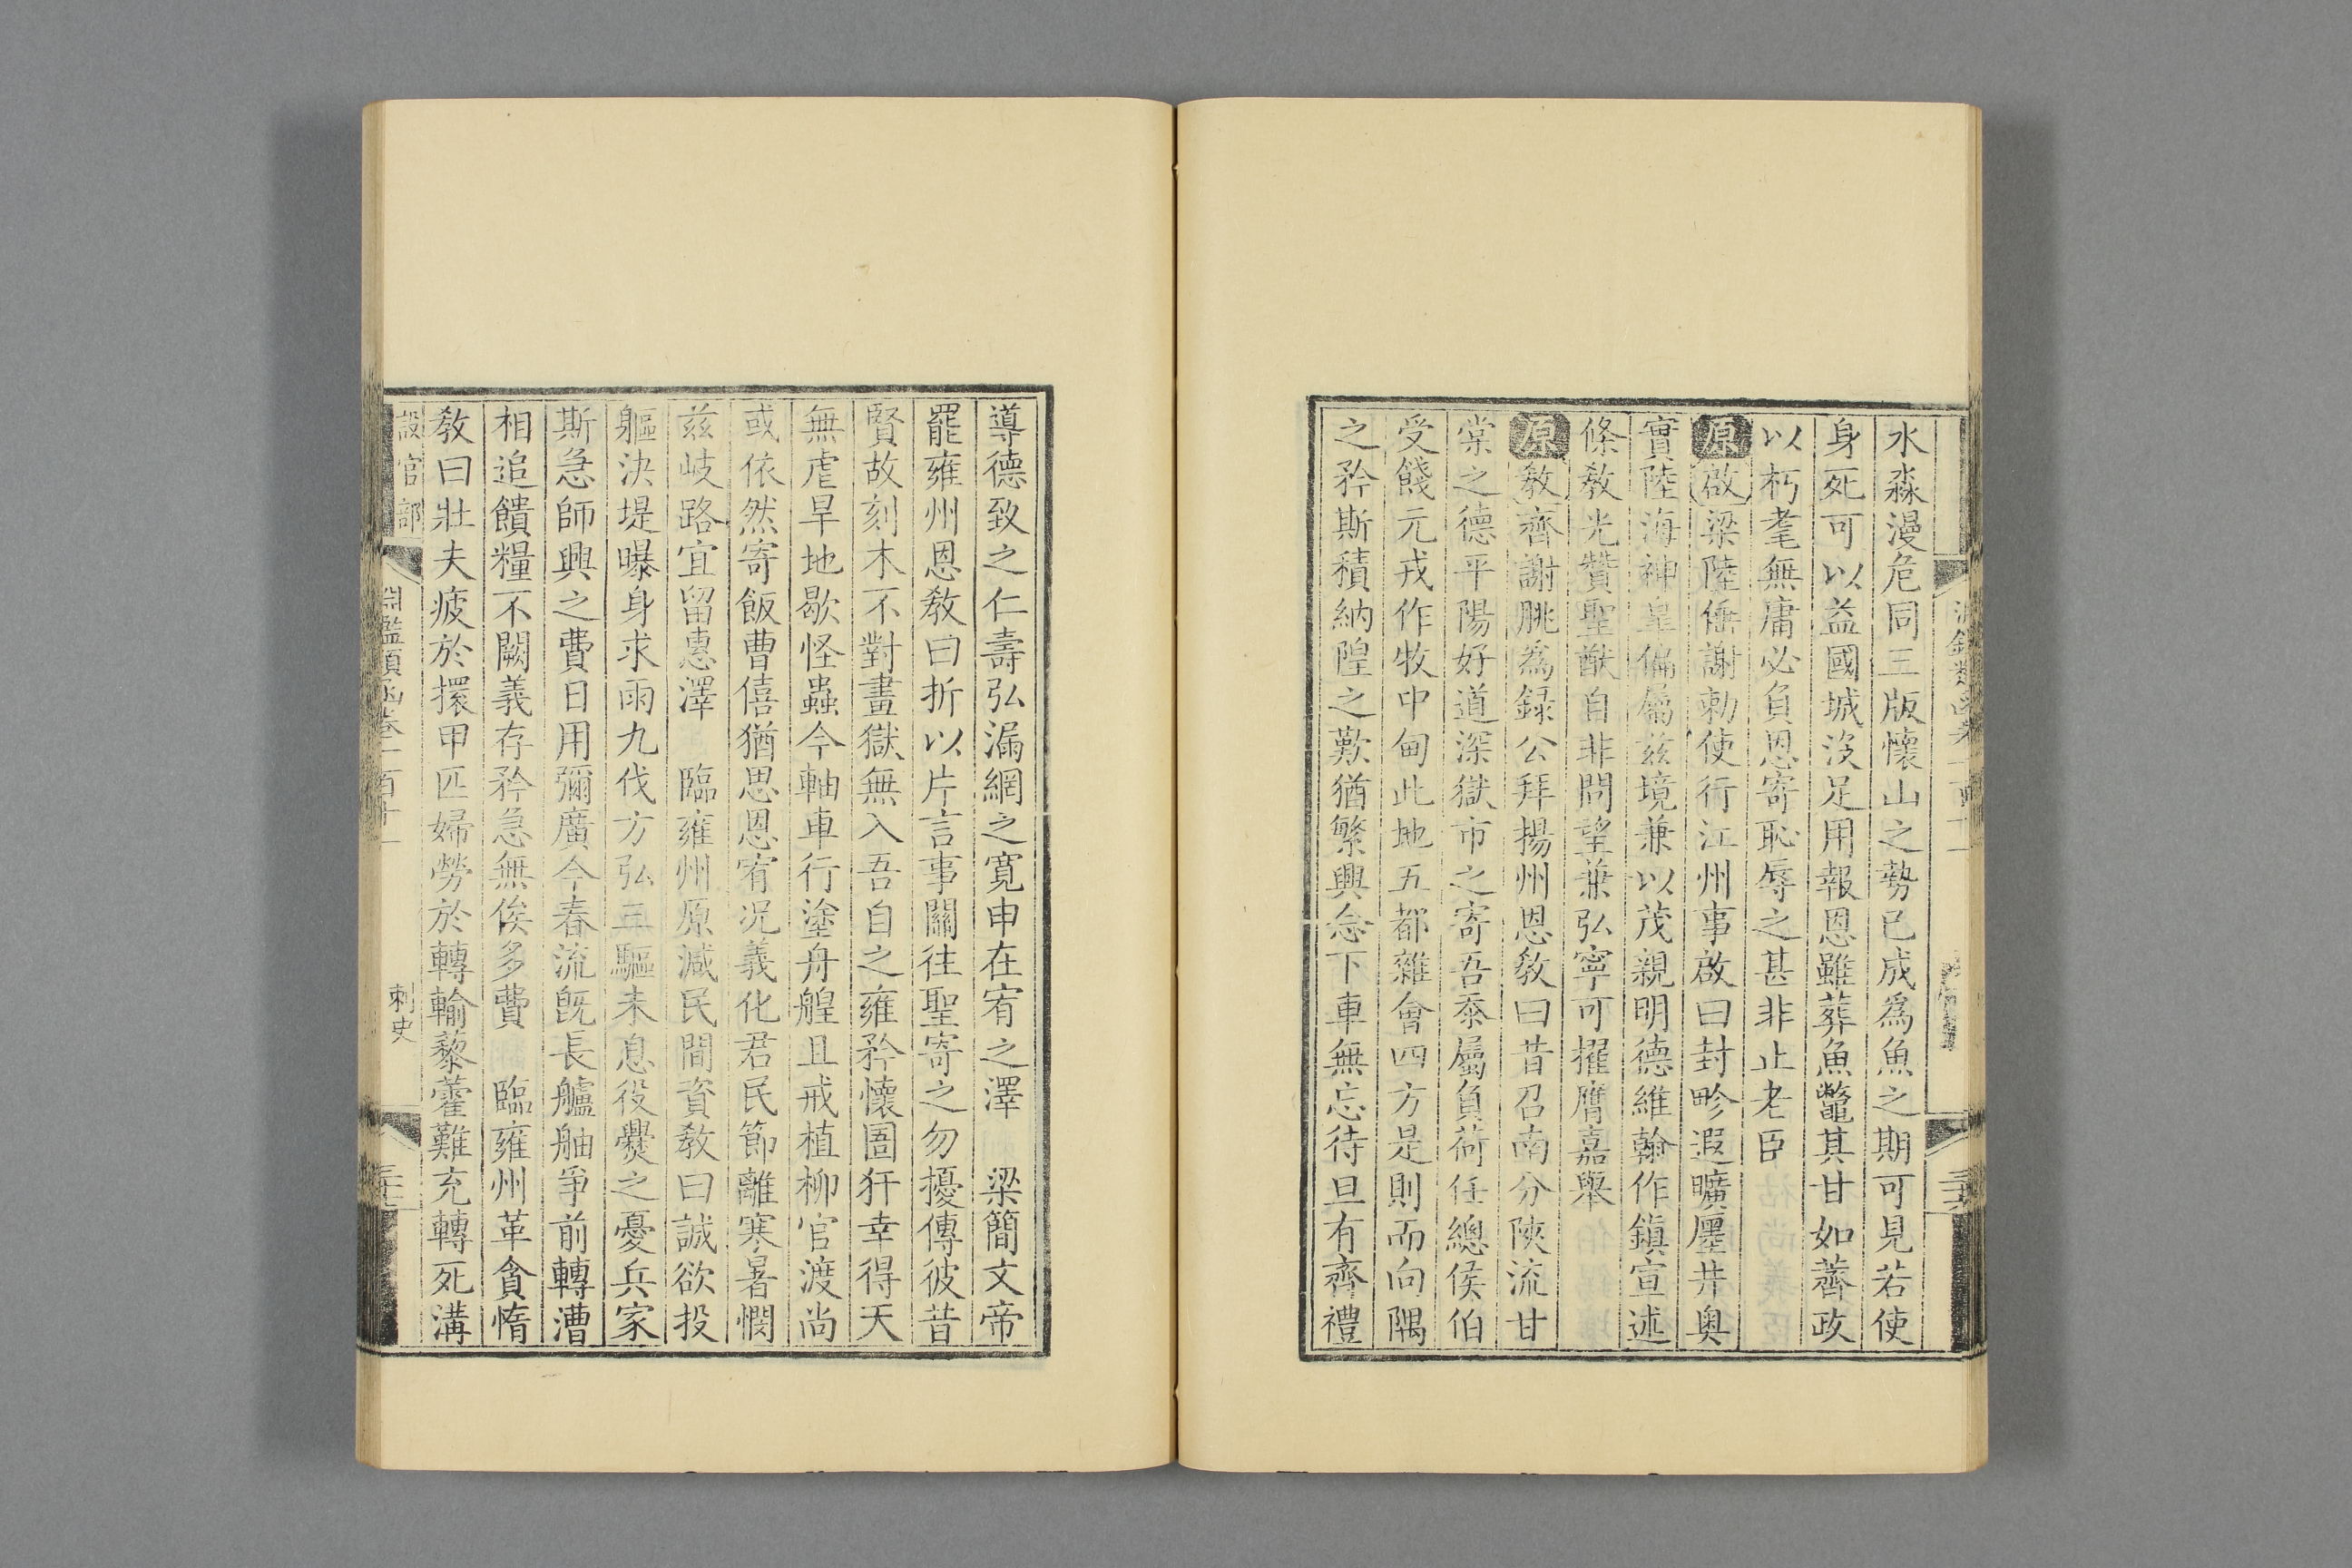 水淼漫危同三版懷山之勢已成爲魚之期可見若使
身死可以益國城沒足用報恩雖葬魚鼈其甘如薺政
以朽耄無庸必負恩寄恥辱之甚非止老臣
原啟梁陸倕謝勅使行江州事啟曰封畛遐曠廛井奥
實陸海神臯偏屬兹境兼以茂親明德維翰作鎮宣述
條教光贊聖猷自非問望兼弘寧可擢膺嘉舉
原教齊謝朓爲録公拜揚州恩教曰昔召南分陝流甘
棠之德平陽好道深獄市之寄吾忝屬負荷任總侯伯
受餞元戎作牧中甸此地五都雜會四方是則而向隅
之矜斯積納隍之歎猶繁興念下車無忘待旦有齊禮
導德致之仁壽弘漏網之寛申在宥之澤 梁簡文帝
罷雍州恩教曰折以片言事關往聖寄之勿擾傳彼昔
賢故刻木不對畫獄無入吾自之雍矜懷圄犴幸得天
無虐旱地歇怪蟲今軸車行塗舟艎且戒植柳官渡尚
或依然寄飯曹僖猶思恩宥况義化君民節離寒暑憫
兹岐路宜留惠澤 臨雍州原減民間資教曰誠欲投
軀決堤曝身求雨九伐方弘三驅未息役㸑之憂兵家
斯急師興之費日用彌廣今春流旣長艫舳爭前轉漕
相追饋糧不闕義存矜急無俟多費 臨雍州革貪惰
教曰壯夫疲於擐甲匹婦勞於轉輸藜藿難充轉死溝
設官部 淵鑑類函卷一百十一 刺史